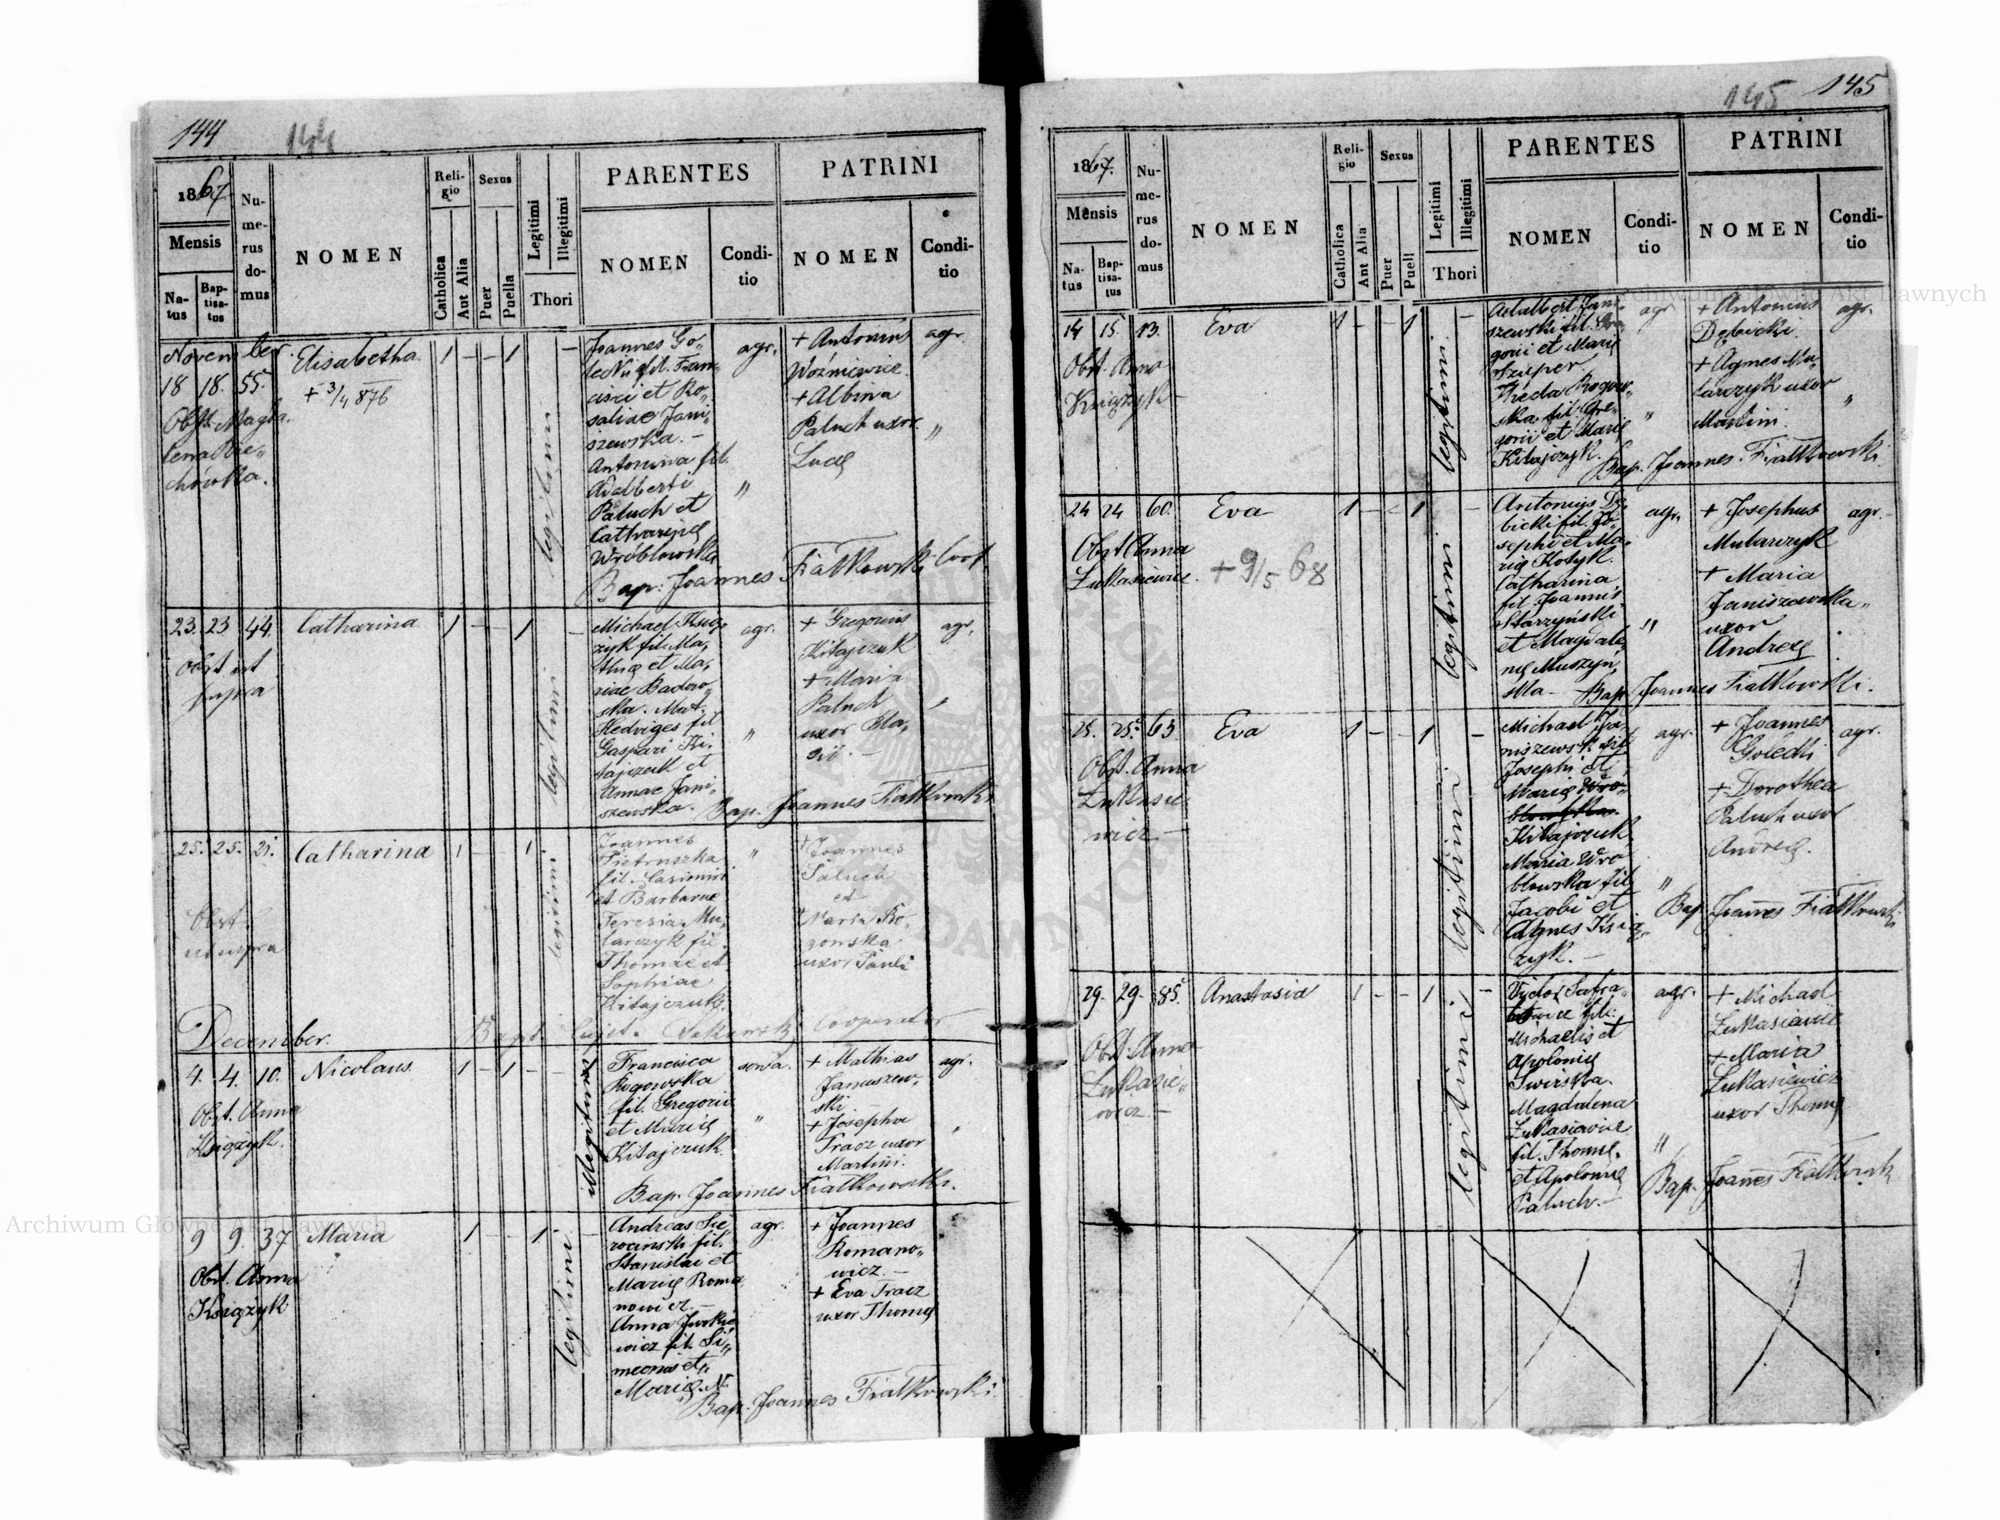 144
144
1867
Mensis
Natus
Baptisatus
Numerus domus
NOMEN
Religio
Catholica
Aut Alia
Sexus
Puer
Puella
Legitimi
Illegitimi
Thori
PARENTES
NOMEN
Conditio
PATRINI
NOMEN
Conditio
November
18 18 55.
Obst. Magda-
lena
Elisabetha
+ 3/4 876
1 – – 1 –
legitimi
Joannes Go-
lecki fil. Fran-
cisci et Ro-
saliae Jani-
szewska. –
Antonina fil.
Adalberti
Paluch et
Catharinę
Wróblowska
agr.
"
+ Antonius
Woźniewicz.
+ Albina
Paluch uxor
Lucę
agr.
"
Bap. Joannes Fiałkowski Coop.
23. 23 44.
Obst ut
supra
Catharina
1 – – 1 –
legitimi
Michael Księ-
żyk fil. Ma-
thię et Ma-
riae Badow-
ska. Mat.
Hedviges fil
Gaspari Ki-
tajczuk et
Annae Jani-
szewska.
agr.
"
+ Gregorius
Kitajczuk
+ Maria
Paluch
uxor Bla-
sii. –
agr.
"
Bap. Joannes Fiałkowski
25. 25. 21.
Obst.
ut supra
Catharina
1 – – 1 –
legitimi
Joannes
Pietruszka
fil. Casimiri
et Barbarae
Teresia Mu-
larczyk fil.
Thomae et
Sophiae
Kitajczuk
"
+ Joannes
Paluch
et
+ Maria Ro-
gowska
uxor Pauli
Bapt. Cooperator
December.
4. 4. 10.
Obst. Anna
Książyk.
Nicolaus
1 – 1 – –
illegitimi
Francisca
Rogowska
fil. Gregorii
et Marię
Kitajczuk.
serva.
"
+ Mathias
Januszew-
ski
+ Josepha
Tracz uxor
Martini.
agr.
"
Bap. Joannes Fiałkowski.
9 9. 37
Obst. Anna
Książyk
Maria
1 – – 1 –
legitimi
Andreas Sie-
rocinski fil.
Stanislai et
Marię Roma
nowicz –
Anna Jurkie
wicz fil. Si-
meonis et
Marię N.
agr.
+ Joannes
Romano-
wicz. –
+ Eva Tracz
uxor Thomę
Bap. Joannes Fiałkowski.
145
145
1867.
Mensis
Natus
Baptisatus
Numerus domus
NOMEN
Religio
Catholica
Ant Alia
Sexus
Puer
Puell
Legitimi
Illegitimi
Thori
PARENTES
NOMEN
Conditio
PATRINI
NOMEN
Conditio
14 15. 13.
Obst. Anna
Książyk –
Eva
1 – – 1 –
legitimi.
Adalbert Jani-
szewski fil. Gre-
gorii et Marię
Szuper.
Rogow-
ska, fil. Gre-
gorii et Marię
Kitajczyk.
agr
"
+ Antonius
Dębicki.
+ Agnes Mu-
larczyk uxor
Martini.
agr.
"
Bap. Joannes Fiałkowski.
24 24 60.
Obst Anna
Łukasiewicz.
Eva
+ 9/5 68
1 – – 1 –
legitimi
Antonius Dę-
bicki fil. Jo-
sephi et Ma-
rię Kotyk.
Catharina
fil. Joannis
Starzyński
et Magdale-
nę Muszyn-
ska –
agr.
"
+ Josephus
Mularczyk
+ Maria
Janiszewska
uxor
Andreę
agr.
Bap. Joannes Fiałkowski.
25. 25. 63.
Obst. Anna
Łukasie-
wicz –
Eva
1 – – 1 –
legitimi
Michael Ja-
niszewski fil
Josephi et
Marię Wró-
blowska
Kitajczuk,
Maria Wró
blowska fil.
Jacobi et
Agnes Książ-
żyk. –
agr.
"
+ Joannes
Golecki
+ Dorothea
Paluch uxor
Andreę.
agr.
Bap. Joannes Fiałkowski
29. 29. 85.
Obst. Anna
Łukasie-
wicz. –
Anastasia
1 – – 1 –
legitimi
fil.
Michaelis et
Apolonię
Swirska.
Magdalena
Łukasiewicz
fil. Thomę
et Apolonię
Paluch. –
agr.
"
+ Michael
Łukasiewicz
+ Maria
Łukasiewicz
uxor Thomę
Bap. Joannes Fiałkowski
Archiwum Główne Akt Dawnych
Archiwum Główne Akt Dawnych